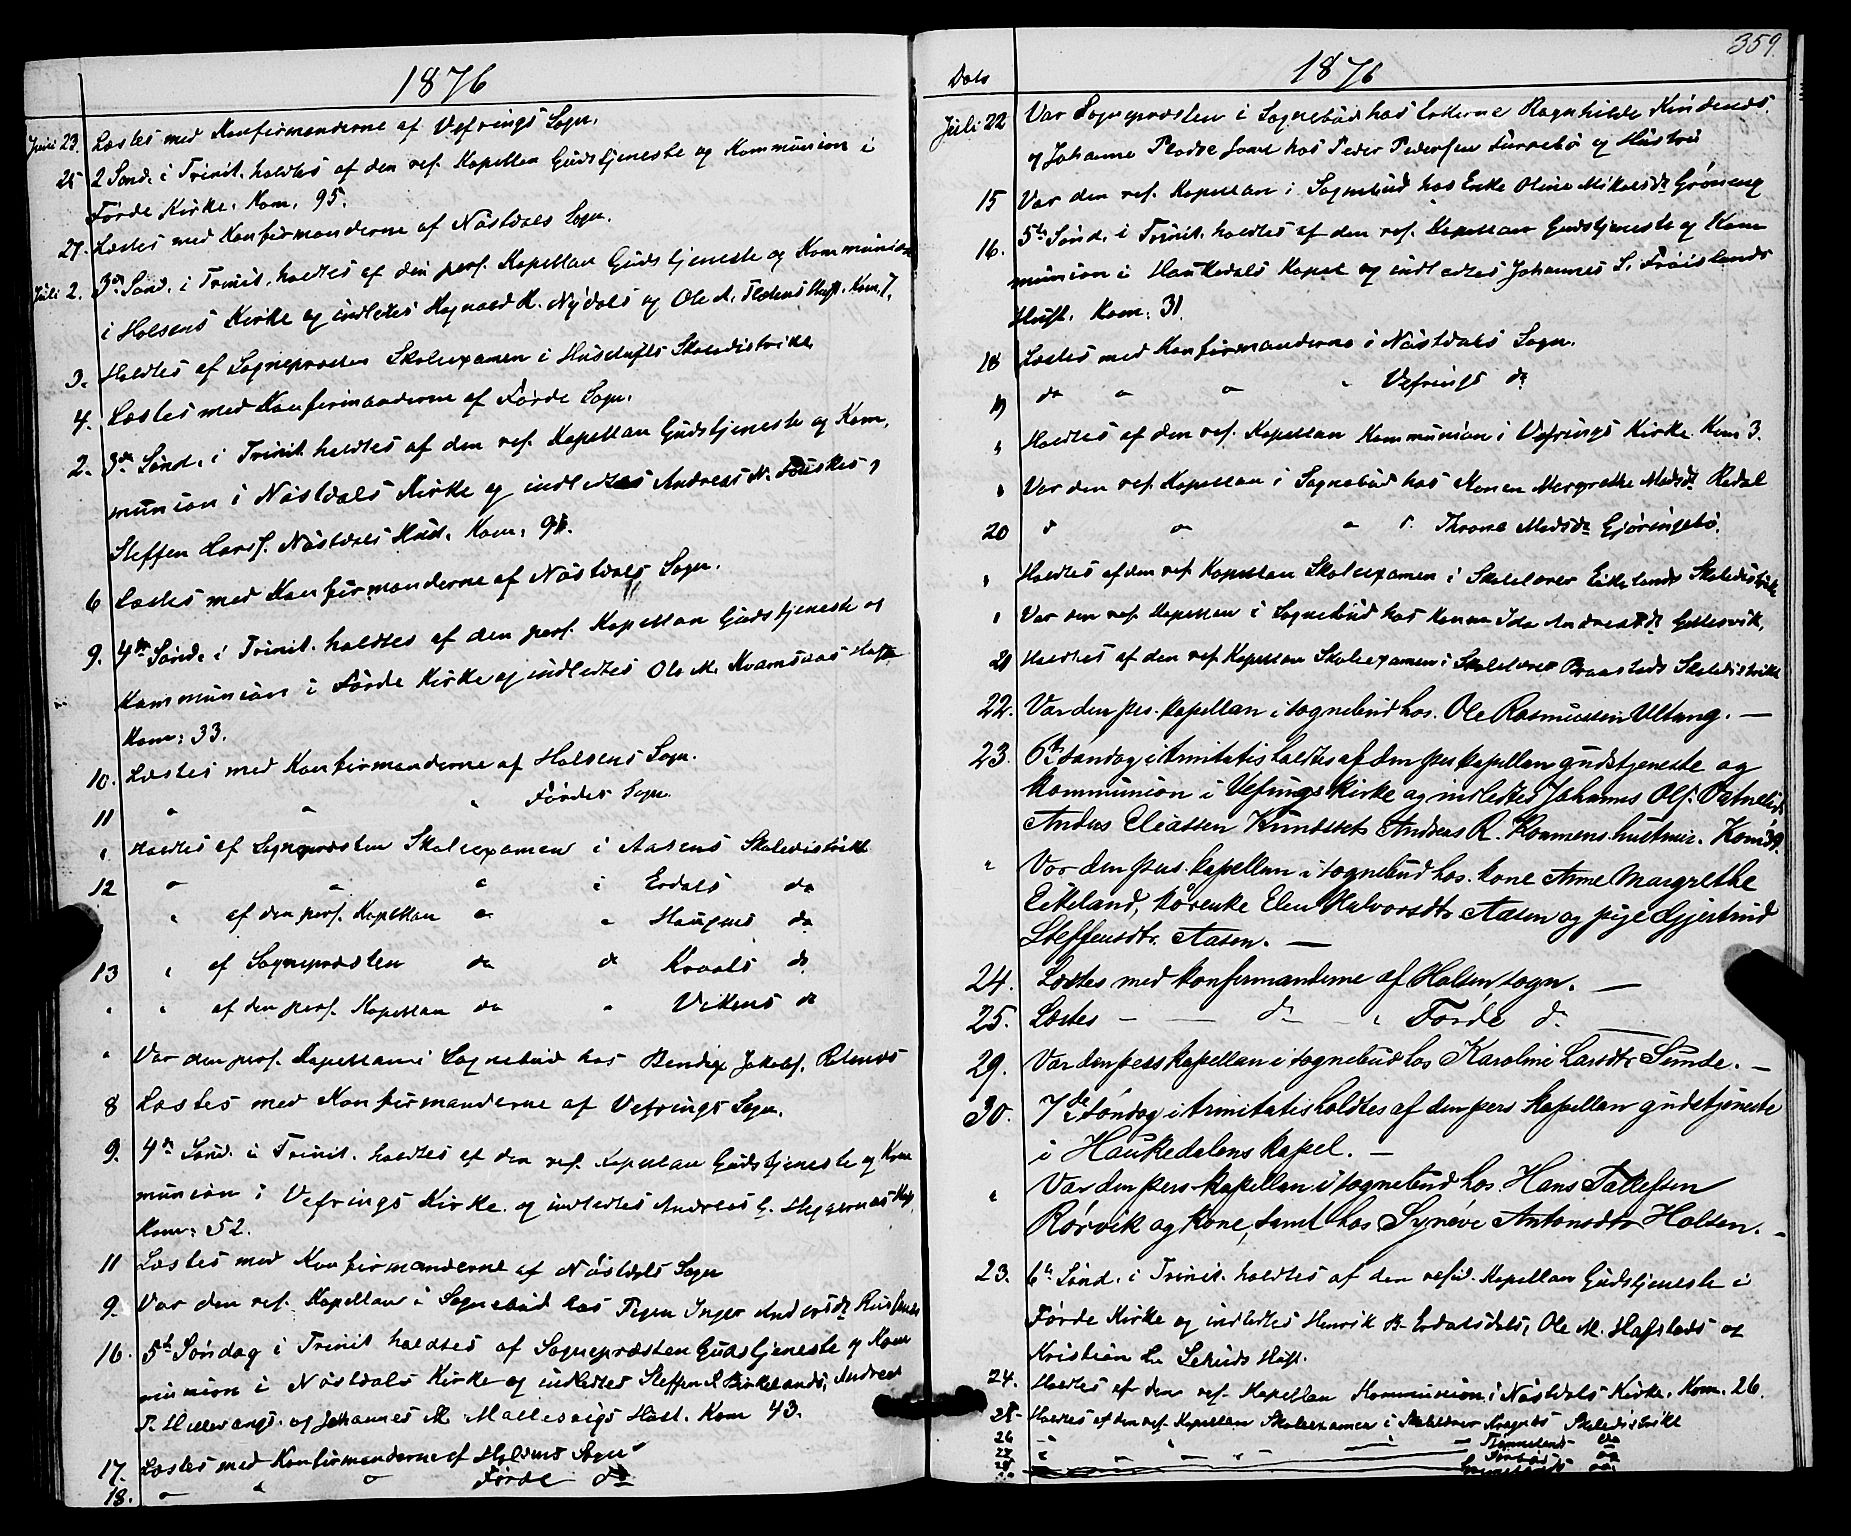 1876
Juni 23. Læstes med Konfirmanderne af Vefrings Sogn.
25 2 Sønd. i Trinit. holdtes af den res. Kapellan Gudstjeneste og Kommunion i
Førde Kirke. Kom. 95.
27. Læstes med Konfirmanderne af Nøstdals Sogn.
Juli 2. 3die Sønd. i Trinit. holdtes af den pers. Kapellan Gudstjeneste og Kommunion
i Holsens Kirke og indledtes Ragnvald H. Nydals og Ole A. Hust. Kom. 7.
3. Holdtes af Sognepræsten Skoleexamen i Skoledistrikt
4. Læstes med Konfirmanderne af Førde Sogn.
2. 3die Sønd. i Trinit. holdtes af den res. Kapellan Gudstjeneste og Kom
munion i Nøstdals Kirke og indledtes Andreas N. Fouskes,
Steffen Lars. Nøstdals Hust. Kom.
6 Læstes med Konfirmanderne af Nøstdals Sogn.
9. 4de Sønd. i Trinit. holdtes af den pers. Kapellan Gudstjeneste og
Kommunion i Førde Kirke og indledtes Ole M. Kvamsaas Hust
Kom: 33.
10. Læstes med Konfirmanderne af Holsens Sogn.
11 " " " Førdes Sogn.
" Holdtes af Sognepræsten Skoleexamen i Aasens Skoledistrikt
12 " " " i Erdals do
" af den pers. Kapellan " " Haugens do
13 " af Sognepræsten do do Kraals do
" " af den pers. Kapellan do " Vikens do
" Var den pers. Kapellan i Sognebud hos Bendix Jakobs.
8 Læstes med Konfirmanderne af Vefrings Sogn.
9. 4de Sønd. i Trinit. holdtes af den res. Kapellan Gudstjeneste og Kom
munion i Vefrings Kirke og indledtes Andreas
Kom: 52.
11 Læstes med Konfirmanderne af Nøstdals Sogn
9. Var den res. Kapellan i Sognebud hos Pigen Inger Andersdr
16. 5te Søndag i Trinit holdtes af Sognepræsten Gudstjeneste og Kom
munion i Nøstdals Kirke og indledtes Steffen S. Birkelands, Andreas
P. Hellevangs og Johannes M. Mallesvigs Hust. Kom 43.
17. Læstes med Konfirmanderne af Holsens Sogn
18. " " " Førde do
359.
Dato 1876
Juli 22 Var Sognepræsten i Sognebud hos Enkerne Ragnhilde Kindnes
og Johanne samt hos Peder Pedersen og Hustru
15 Var den res. Kapellan i Sognebud hos Enke Oline Mikalsdr Grøneng
16. 5te Sønd. i Trinit. holdtes af den res. Kapellan Gudstjeneste og Kom
munion i Haukedals Kapel og indledtes Johannes S. Frøislands
Hust. Kom: 31.
18 Læstes med Konfirmanderne i Nøstdals Sogn.
19 do " " " Vefrings do
" Holdtes af den res. Kapellan Kommunion i Vefrings Kirke. Kom 3.
" Var den res. Kapellan i Sognebud hos Konen Margrethe Madsdr Redal
20 " " " " Throne Madsdr Gjøringebø.
" Holdtes af den res. Kapellan Skoleexamen i Skolelærer Eikelands Skoledistrikt
" Var den res. Kapellan i Sognebud hos Konen Ida Andreasdr
21 Holdtes af den res. Kapellan Skoleexamen i Skolelærer Braastads Skoledistrikt
22. Var den pers. kapellan i sognebud hos Ole Rasmussen Ultang. —
23. 6te søndag i trinitatis holdtes af den pers. kapellan gudstjeneste og
kommunion i Vefrings kirke og indledtes Johannes Ols.
Anders Eliassen Kundsets Andreas R. hustruer. Kom 39.
" Var den pers. kapellan i sognebud hos kone Anne Margrethe
Eikeland, kårenke Elen Halvorsdtr. Aasen og pige Gjertrud
Steffensdtr. Aasen. —
24. Læstes med konfirmanderne af Holsen sogn. —
25. Læstes — — do " Førde do —
29. Var den pers. kapellan i sognebud hos Karoline Larsdtr. Sunde. —
30. 7de søndag i trinitatis holdtes af den pers. kapellan gudstjeneste
i Haukedalens kapel. —
" Var den pers. kapellan i sognebud hos Hans Tollefsen
Rørvik og kone, samt hos Synøve Antonsdtr. Holsen. —
23. 6te Sønd. i Trinit. holdtes af den resid. Kapellan Gudstjeneste i
Førde Kirke og indledtes Henrik B. Erdalsdals, Ole M. Hafstads og
Kristian Hust.
24. Holdtes af den res. Kapellan Kommunion i Nøstdals Kirke. Kom. 26.
25 Holdtes af den res. Kapellan Skoleexamen i Skolelærer Skoledistrikt
26 do
27
28